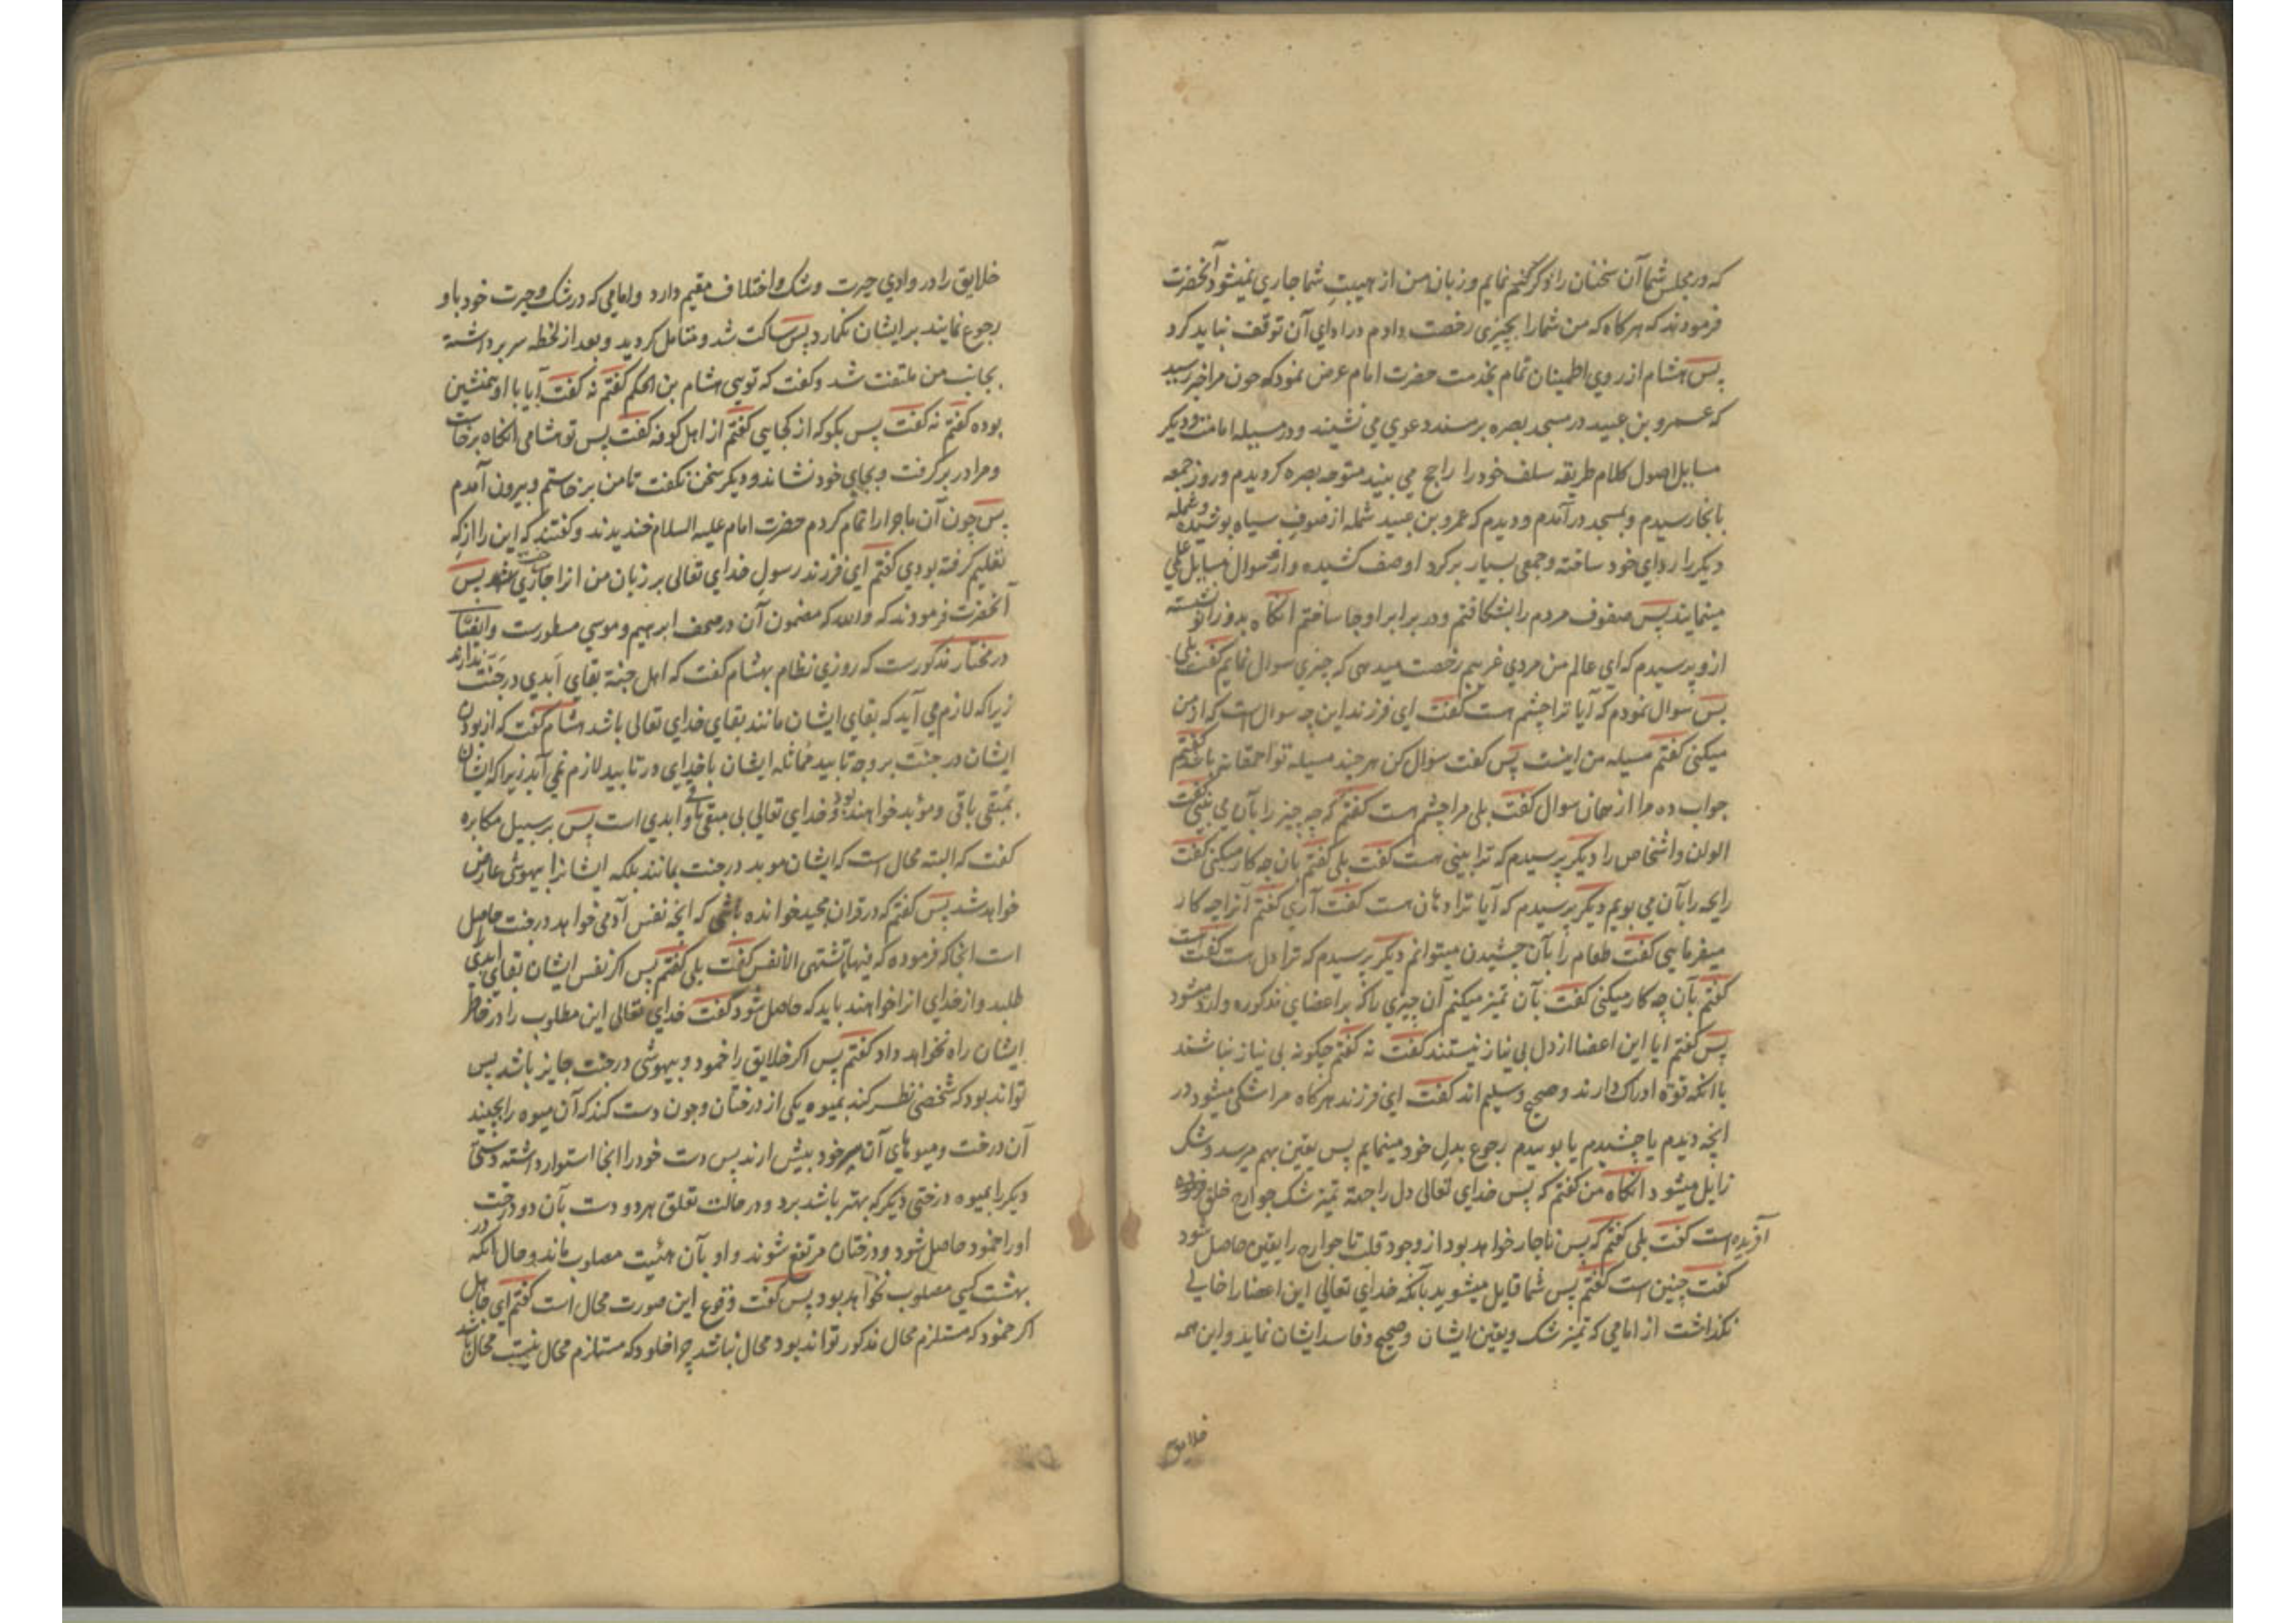 که در مجلس شما آن سخنان را ذکر کنم نمایم و زبان من از هیبت شما جاری نمیشود آنحضرت
فرمودند که هرکاه که من شما را بچیزی رخصت دادم در ادای آن توقف نباید کرد
پس هشام از روی اطمینان تمام بخدمت حضرت امام عرض نمود که چون مرا خبر رسید
که عمرو بن عبید در مسجد بصره بر مسند دعوی می نشیند و در مسیله امامت و دیکر
مسایل اصول کلام طریقه سلف خود را راجح می بیند متوجه بصره کردیدم و روز جمعه
بانجا رسیدم و بمسجد در آمدم و دیدم که عمرو بن عبید شمله از صوف سیاه پوشیده و شمله
دیکر را ردای خود ساخته و جمعی بسیار بر کرد او صف کشیده و ازو سوال مسایل علی
مینمایند پس صفوف مردم را بشکافتم و در برابر او جا ساختم انکاه بدو زانو نشسته
ازو پرسیدم که ای عالم من مردی غریبم رخصت میدهی که چیزی سوال نمایم کفت بلی
پس سوال نمودم که آیا ترا چشم هست کفت ای فرزند این چه سوال است که از من
میکنی کفتم مسیله من اینست پس کفت سوال کن هر چند مسیله تو احمقانه باشد کفتم
جواب ده مرا از همان سوال کفت بلی مرا چشم هست کفتم که چه چیز را بآن می بینی کفت
الوان و اشخاص را دیکر پرسیدم که ترا بینی هست کفت بلی کفتم بآن چه کار میکنی کفت
رایحه را بآن می بویم دیکر پرسیدم که آیا ترا دهان هست کفت آری کفتم آنرا چه کار
میفرمایی کفت طعام را بآن چشیدن میتوانم دیکر پرسیدم که ترا دل هست کفت است
کفتم بآن چه کار میکنی کفت بآن تمیز میکنم آن چیزی را که بر اعضای مذکوره وارد میشود
پس کفتم ایا این اعضا از دل بی نیاز نیستند کفت نه کفتم چکونه بی نیاز نباشند
با انکه قوة ادراک دارند و صحیح و سلیم اند کفت ای فرزند هرکاه مرا شکی میشود در
انچه دیدم یا چشیدم یا بوییدم رجوع بدل خود مینمایم پس یقین بهم میرسد و شک
زایل میشود انکاه من کفتم که پس خدای تعالی دل را جهة تمیز شک جوارح خلق
آفریده است کفت بلی کفتم که پس ناچار خواهد بود از وجود قلب تا جوارح را یقین حاصل شود
کفت چنین است کفتم پس شما قایل میشوید بآنکه خدای تعالی این اعضا را خالی
نکذاشت از امامی که تمیز شک و یقین ایشان و صحیح و فاسد ایشان نماید و این همه
خلایق
خلایق را در وادی حیرت و شک و اختلاف مقیم دارد و امامی که در شک و حیرت خود باو
رجوع نمایند بر ایشان نکمارد پس ساکت شد و متامل کردید و بعد از لحظه سر برداشته
بجانب من ملتفت شد و کفت که تویی هشام بن الحکم کفتم نه کفت آیا با او همنشین
بوده کفتم نه کفت پس بکو که از کجایی کفتم از اهل کوفه کفت پس تو هشامی انکاه برخاست
و مرا در بر کرفت و بجای خود نشاند و دیکر سخن نکفت تا من برخاستم و بیرون آمدم
پس چون آن ماجرا را تمام کردم حضرت امام علیه السلام خندیدند و کفتند که این را از که
تعلیم کرفته بودی کفتم ای فرزند رسول خدای تعالی بر زبان من جاری شد پس
آنحضرت فرمودند که والله که مضمون آن در صحف ابرهیم و موسی مسطورست و ایضا
در مختار مذکورست که روزی نظام بهشام کفت که اهل جنة بقای ابدی در جنت ندارند
زیرا که لازم می آید که بقای ایشان مانند بقای خدای تعالی باشد هشام کفت که از بودن
ایشان در جنت بر وجه تابید مماثله ایشان با خدای در تابید لازم نمی آید زیرا که ایشان
بمبقی باقی و مؤبد خواهند بود و خدای تعالی بی مبقی باقی و ابدی است پس بر سبیل مکابره
کفت که البته محال است که ایشان موبد در جنت بمانند بلکه ایشانرا بیهوشی عارض
خواهد شد پس کفتم که در قران مجید خوانده باشی که انچه نفس آدمی خواهد در جنت حاصل
است انجا که فرموده که فیها ما تشتهی الانفس کفت بلی کفتم پس اکر نفس ایشان بقای ابدی
طلبد و از خدای انرا خواهند باید که حاصل شود کفت خدای تعالی این مطلوب را در خاطر
ایشان راه نخواهد داد کفتم پس اکر خلایق را خمود و بیهوشی در جنت جایز باشد پس
تواند بود که شخصی نظر کند بمیوه یکی از درختان و چون دست کند که آن میوه را بچیند
آن درخت و میوهای آن سر خود پیش ارند پس دست خود را انجا استوار داشته و دستی
دیکر را بمیوه درختی دیکر که بهتر باشد برد و در حالت تعلق هر دو دست بآن دو درخت
او را خمود حاصل شود و درختان مرتفع شوند و او بآن هیئت مصلوب ماند و حال آنکه در
بهشت کسی مصلوب نخواهد بود پس کفت وقوع این صورت محال است کفتم ای جاهل
اکر خمود که مستلزم محال مذکور تواند بود محال نباشد چرا خلود که مستلزم محال نیست محال باشد